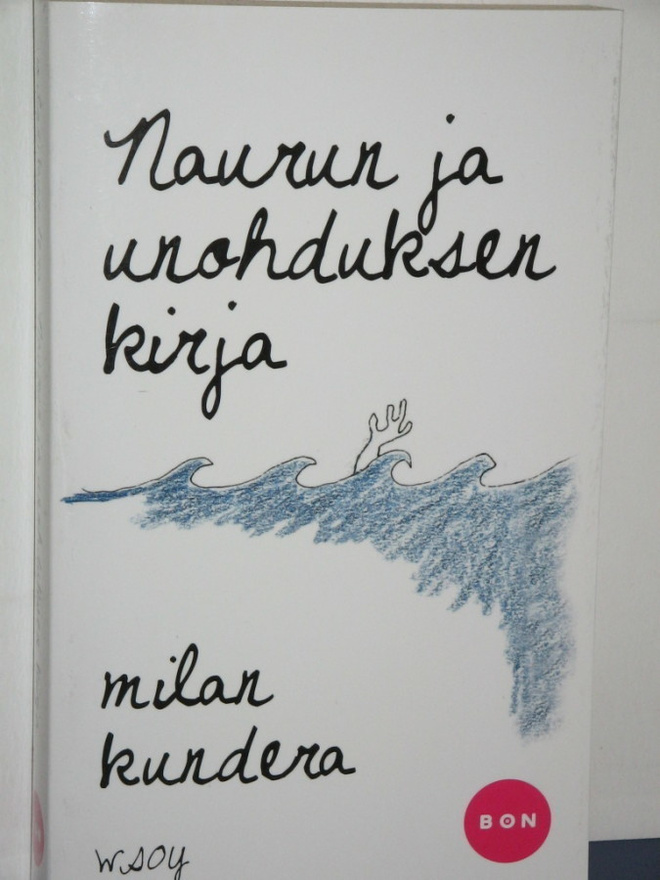 Naurun ja
unohduksen
kirja
milan
kundera
wsoy
BON